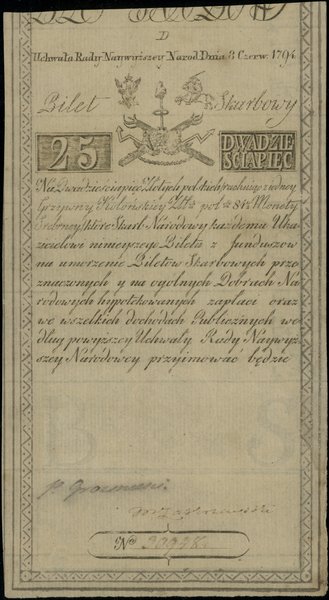 D
Uchwała Rady Naywyższey Narod. Dnia 8 Czerw. 1794
Bilet Skarbowy
25 DWADZIE
ŚCIAPIĘC
Na Dwadzieściapięć Złotych polskich rachuiąc z iedney
Grzywny Kolońskiey Zł. pol 84½ Monety
Srebrney, które Skarb Narodowy każdemu Oka
zicielowi ninieyszego Biletu z funduszow
na umorzenie Biletów Skarbowych prze
znaczonych y na ogolnych Dobrach Na
rodowych hypotekowanych zapłaci oraz
we wszelkich dochodach Publicznych we
dług powyższey Uchwały Rady Naywyż
szey Narodowey przyimować będzie
No